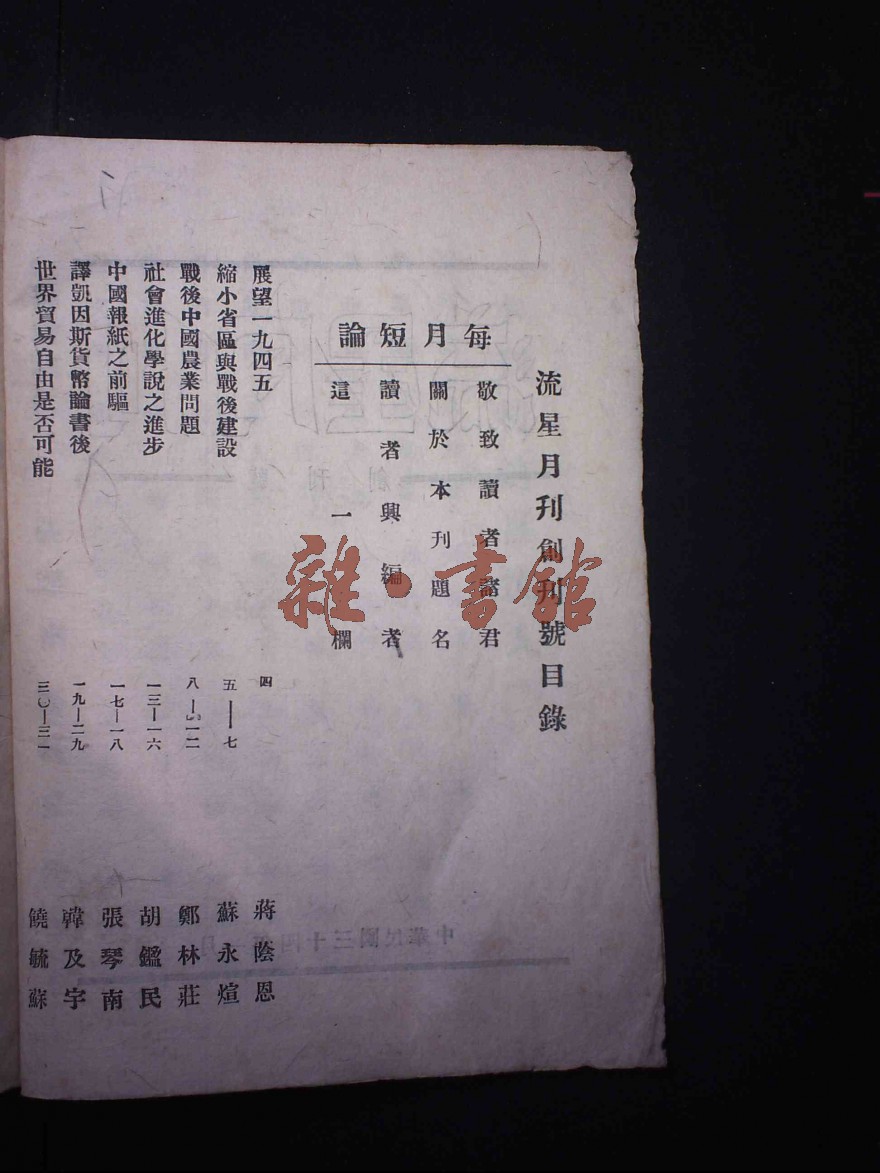 流星月刊創刊號目錄
每月短論
敬致讀者諸君
關於本刊題名
讀者與編者
這一欄
展望一九四五 四 蔣蔭恩
縮小省區與戰後建設 五——七 蘇永煊
戰後中國農業問題 八—一二 鄭林莊
社會進化學說之進步 一三—一六 胡鑑民
中國報紙之前驅 一七—一八 張琴南
譯凱因斯貨幣論書後 一九—二九 韓及宇
世界貿易自由是否可能 三〇—三一 饒毓蘇
中華民國三十四年 月
雜·書館